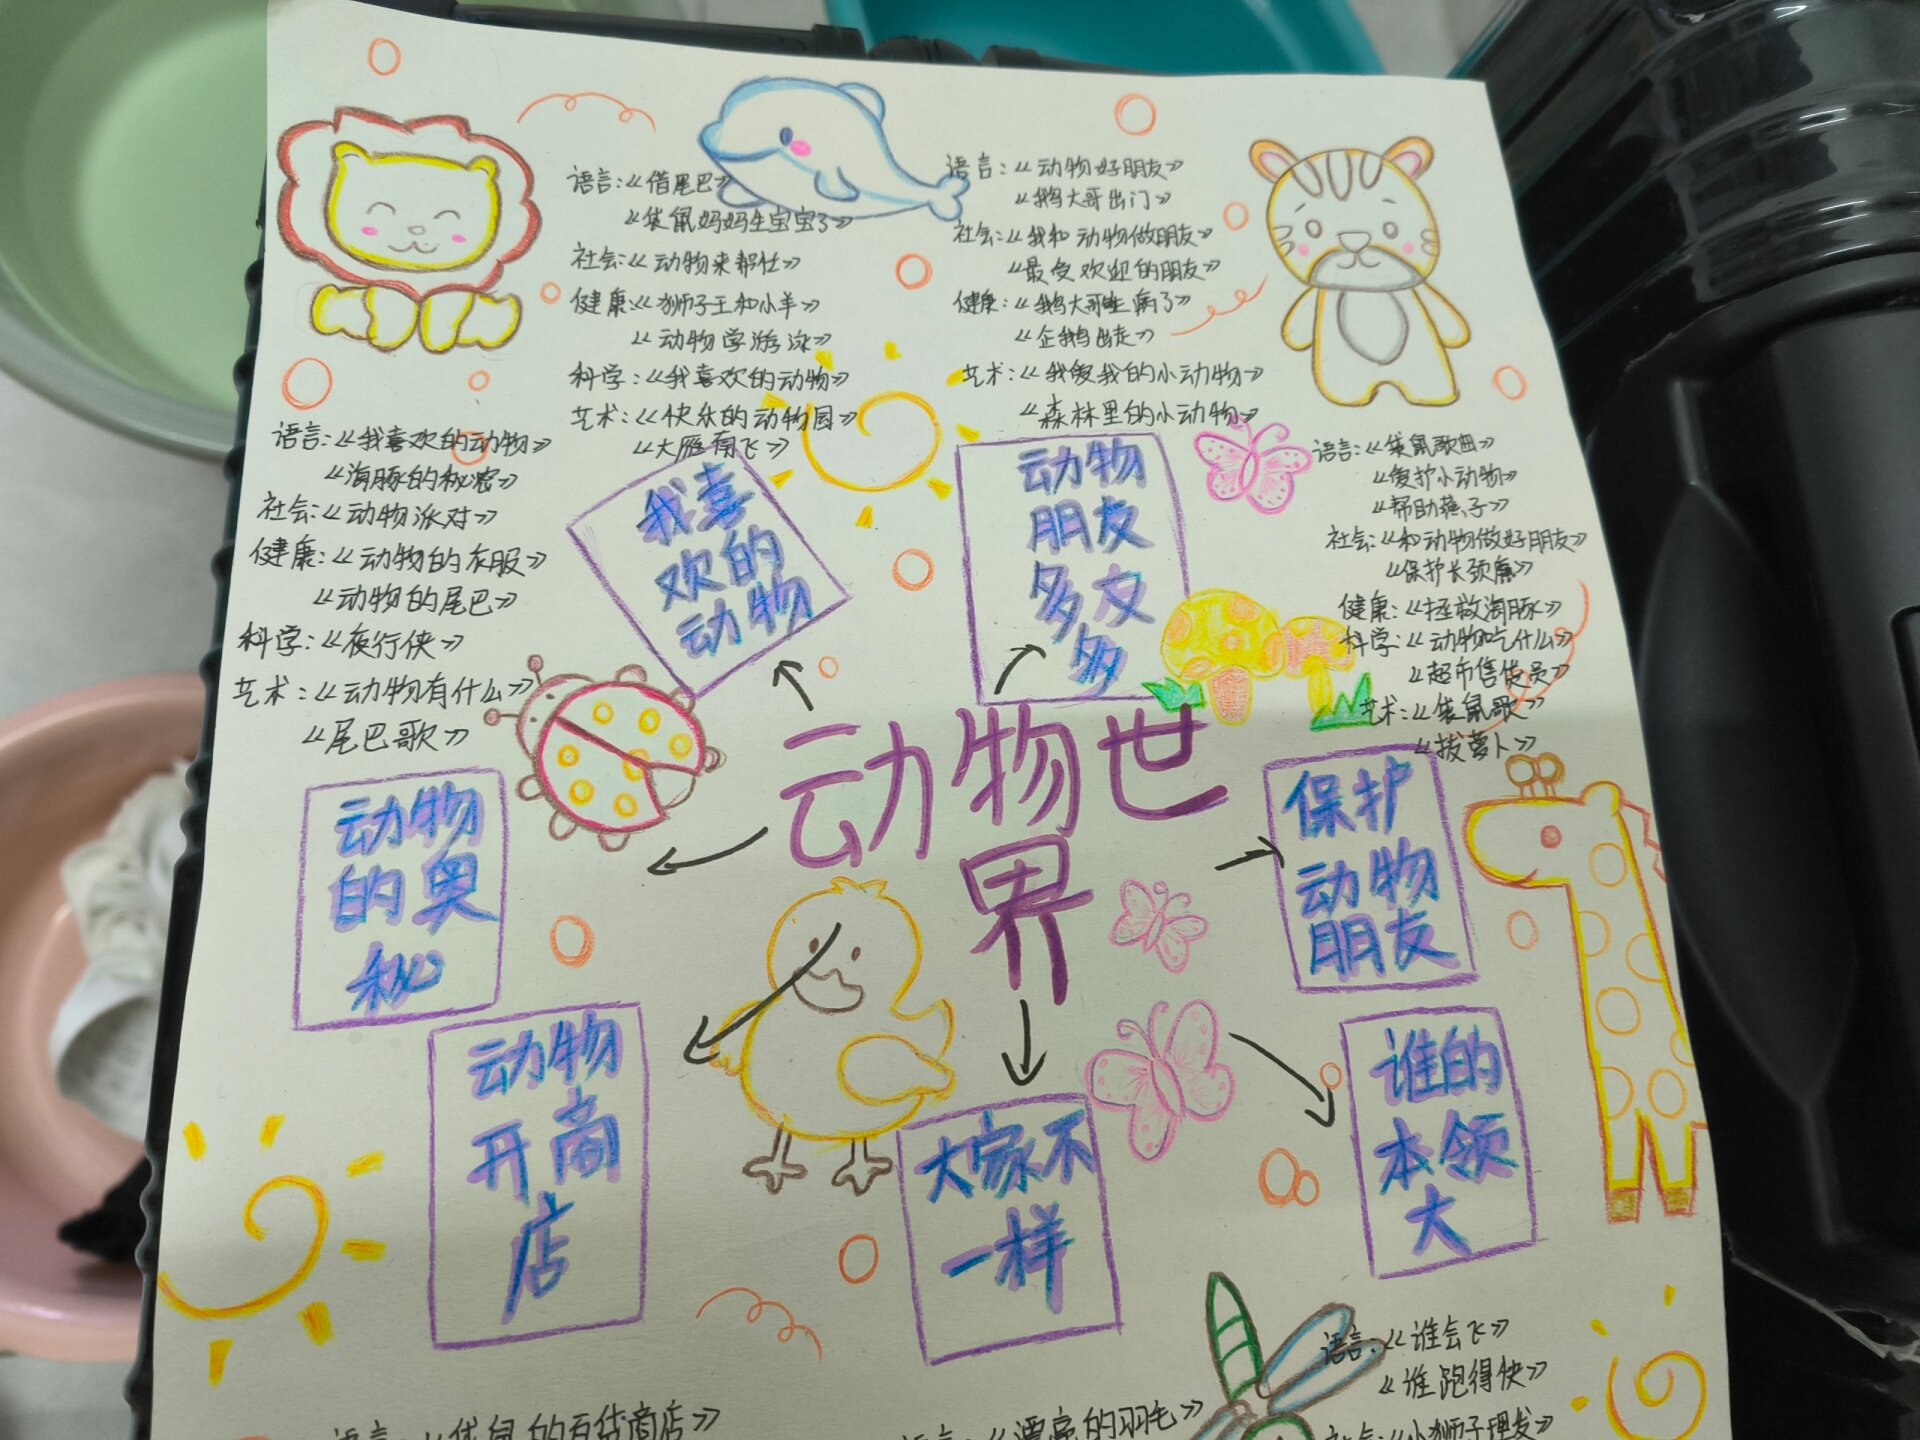 动物世
界
语言:《借尾巴》
《袋鼠妈妈生宝宝了》
社会:《动物来帮忙》
健康:《狮子王和小羊》
《动物学游泳》
科学:《我喜欢的动物》
艺术:《快乐的动物园》
《大雁南飞》
我喜
欢的
动物
语言:《动物好朋友》
《鹅大哥出门》
社会:《我和动物做朋友》
《最受欢迎的朋友》
健康:《鹅大哥生病了》
《企鹅出走》
艺术:《我爱我的小动物》
《森林里的小动物》
动物
朋友
多又
多
语言:《我喜欢的动物》
《海豚的秘密》
社会:《动物派对》
健康:《动物的衣服》
《动物的尾巴》
科学:《夜行侠》
艺术:《动物有什么》
《尾巴歌》
动物
的奥
秘
语言:《袋鼠歌曲》
《爱护小动物》
《帮助燕子》
社会:《和动物做好朋友》
《保护长颈鹿》
健康:《拯救海豚》
科学:《动物吃什么》
《超市售货员》
艺术:《袋鼠歌》
《拔萝卜》
保护
动物
朋友
动物
开商
店
大家不
一样
谁的
本领
大
语言:《谁会飞》
《谁跑得快》
社会:《小狮子理发》
语言:《袋鼠的百货商店》
语言:《漂亮的羽毛》